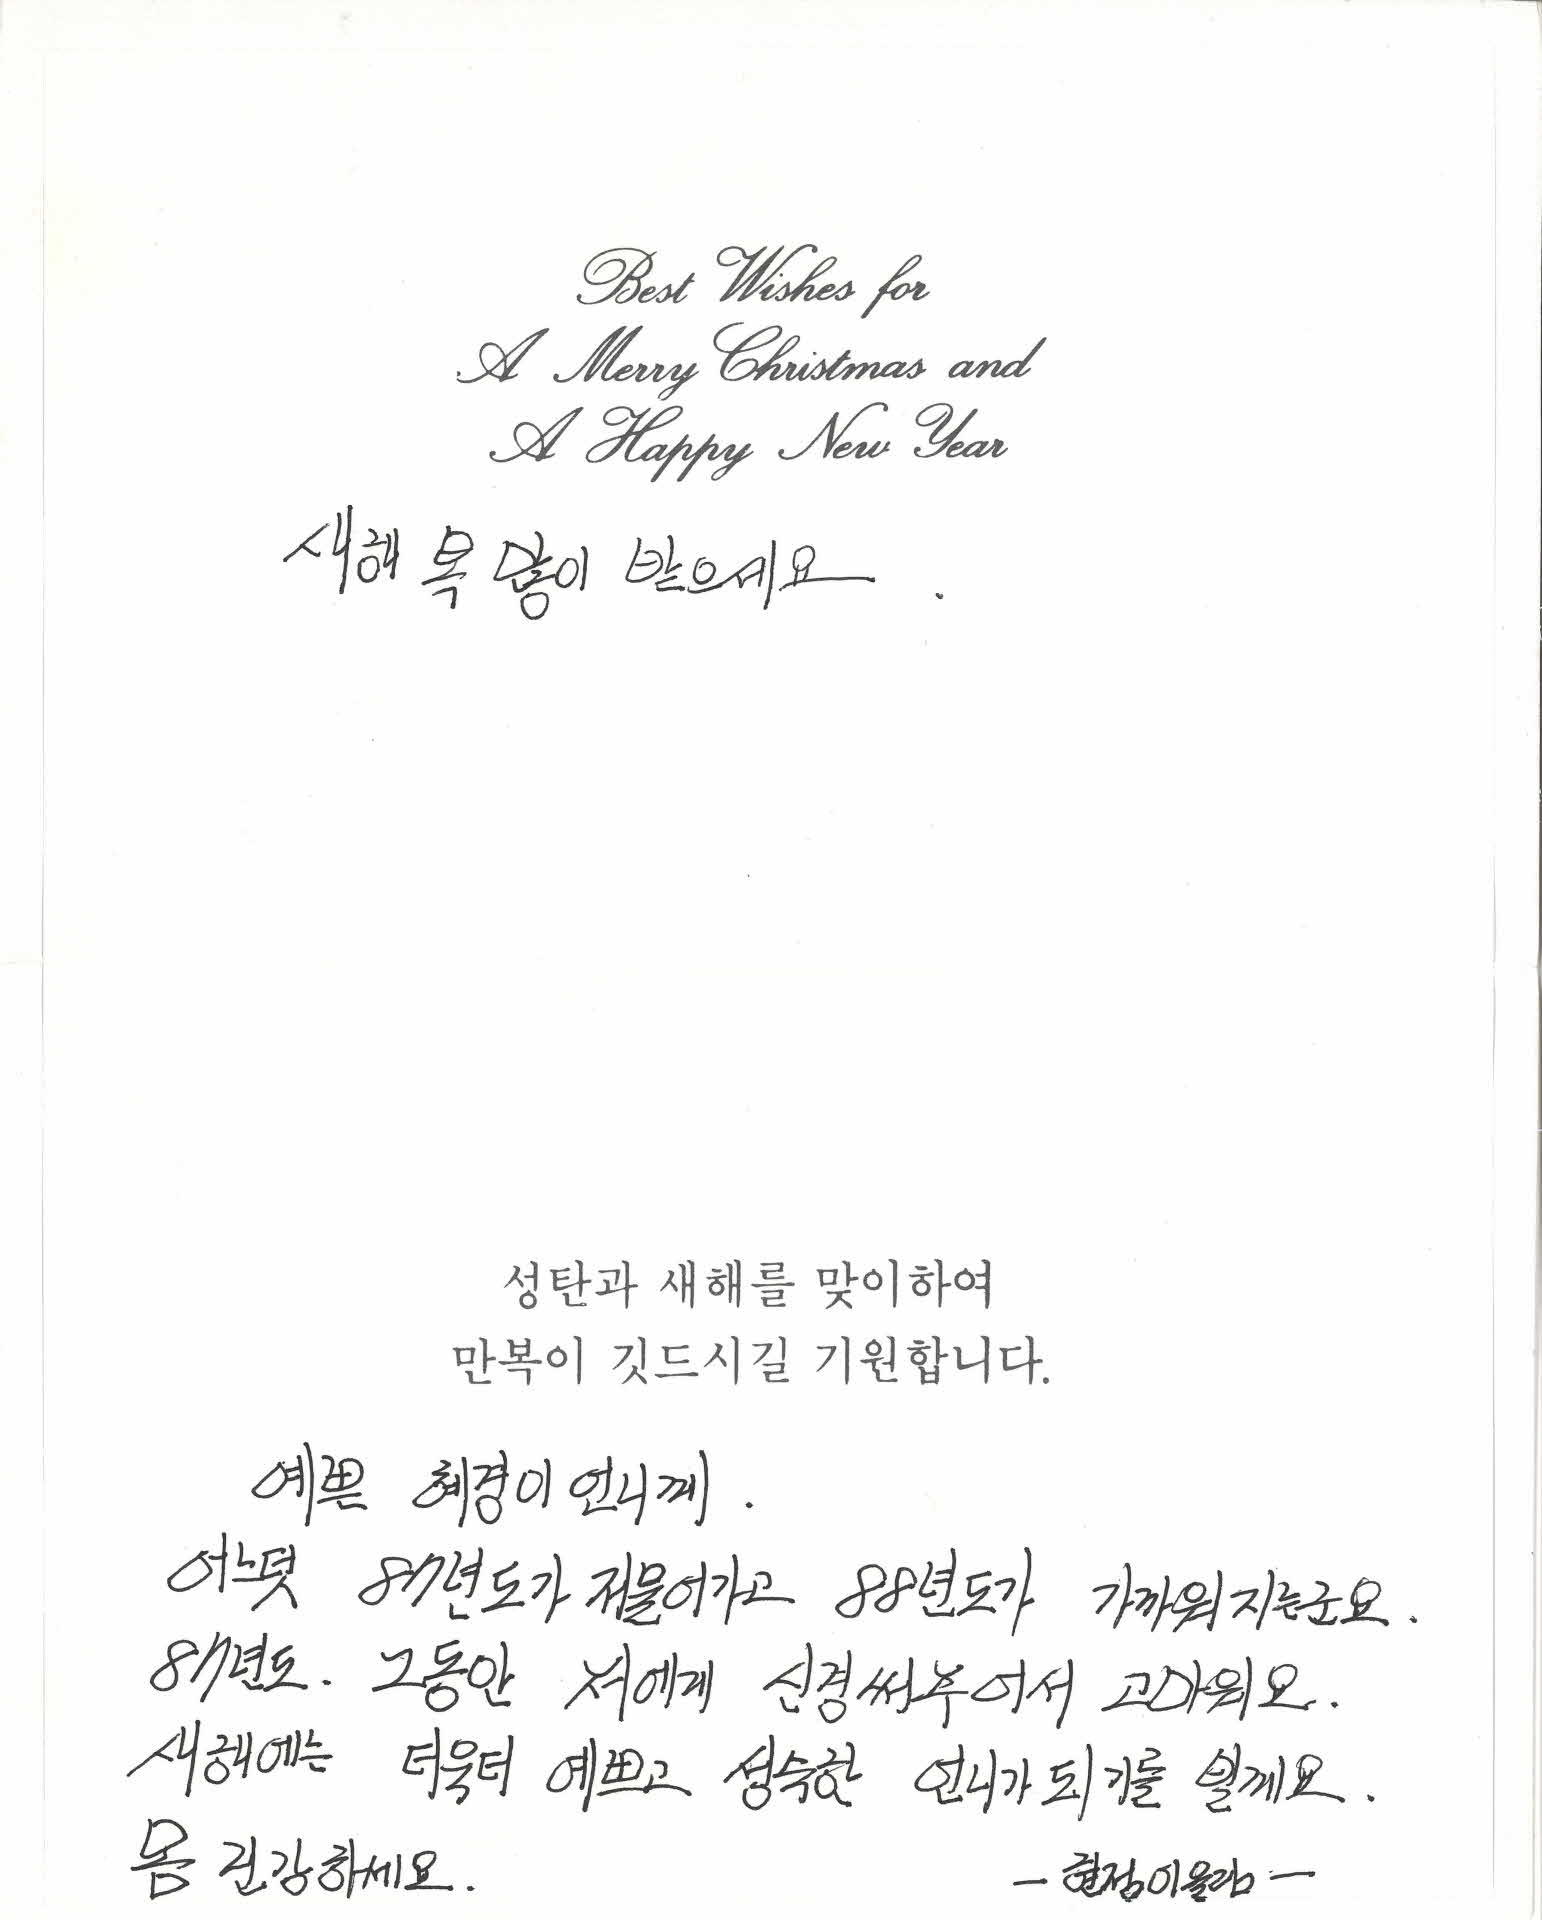 Best Wishes for
A Merry Christmas and
A Happy New Year
새해 복 많이 받으세요.
성탄과 새해를 맞이하여
만복이 깃드시길 기원합니다.
예쁜 혜경이 언니께.
어느덧 87년도가 저물어가고 88년도가 가까워지는군요.
87년도. 그동안 저에게 신경써주어서 고마워요.
새해에는 더욱더 예쁘고 성숙한 언니가 되기를 빌께요.
몸 건강하세요. - 현정이 올림 -